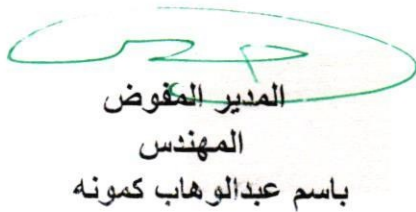 المدير المفوض
المهندس
باسم عبدالوهاب كمونه